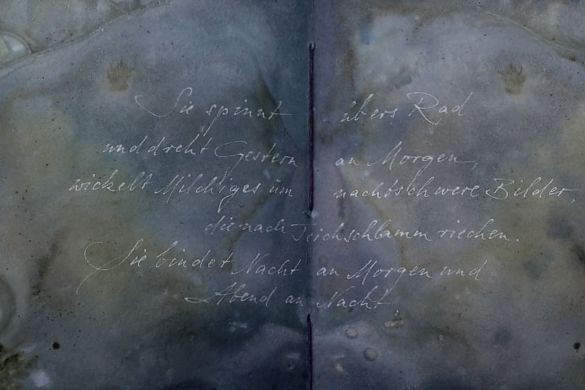 Sie spinnt übers Rad
und dreht Gestern an Morgen,
wickelt Milchiges um nachtschwere Bilder,
die nach Teichschlamm riechen.
Sie bindet Nacht an Morgen und
Abend an Nacht